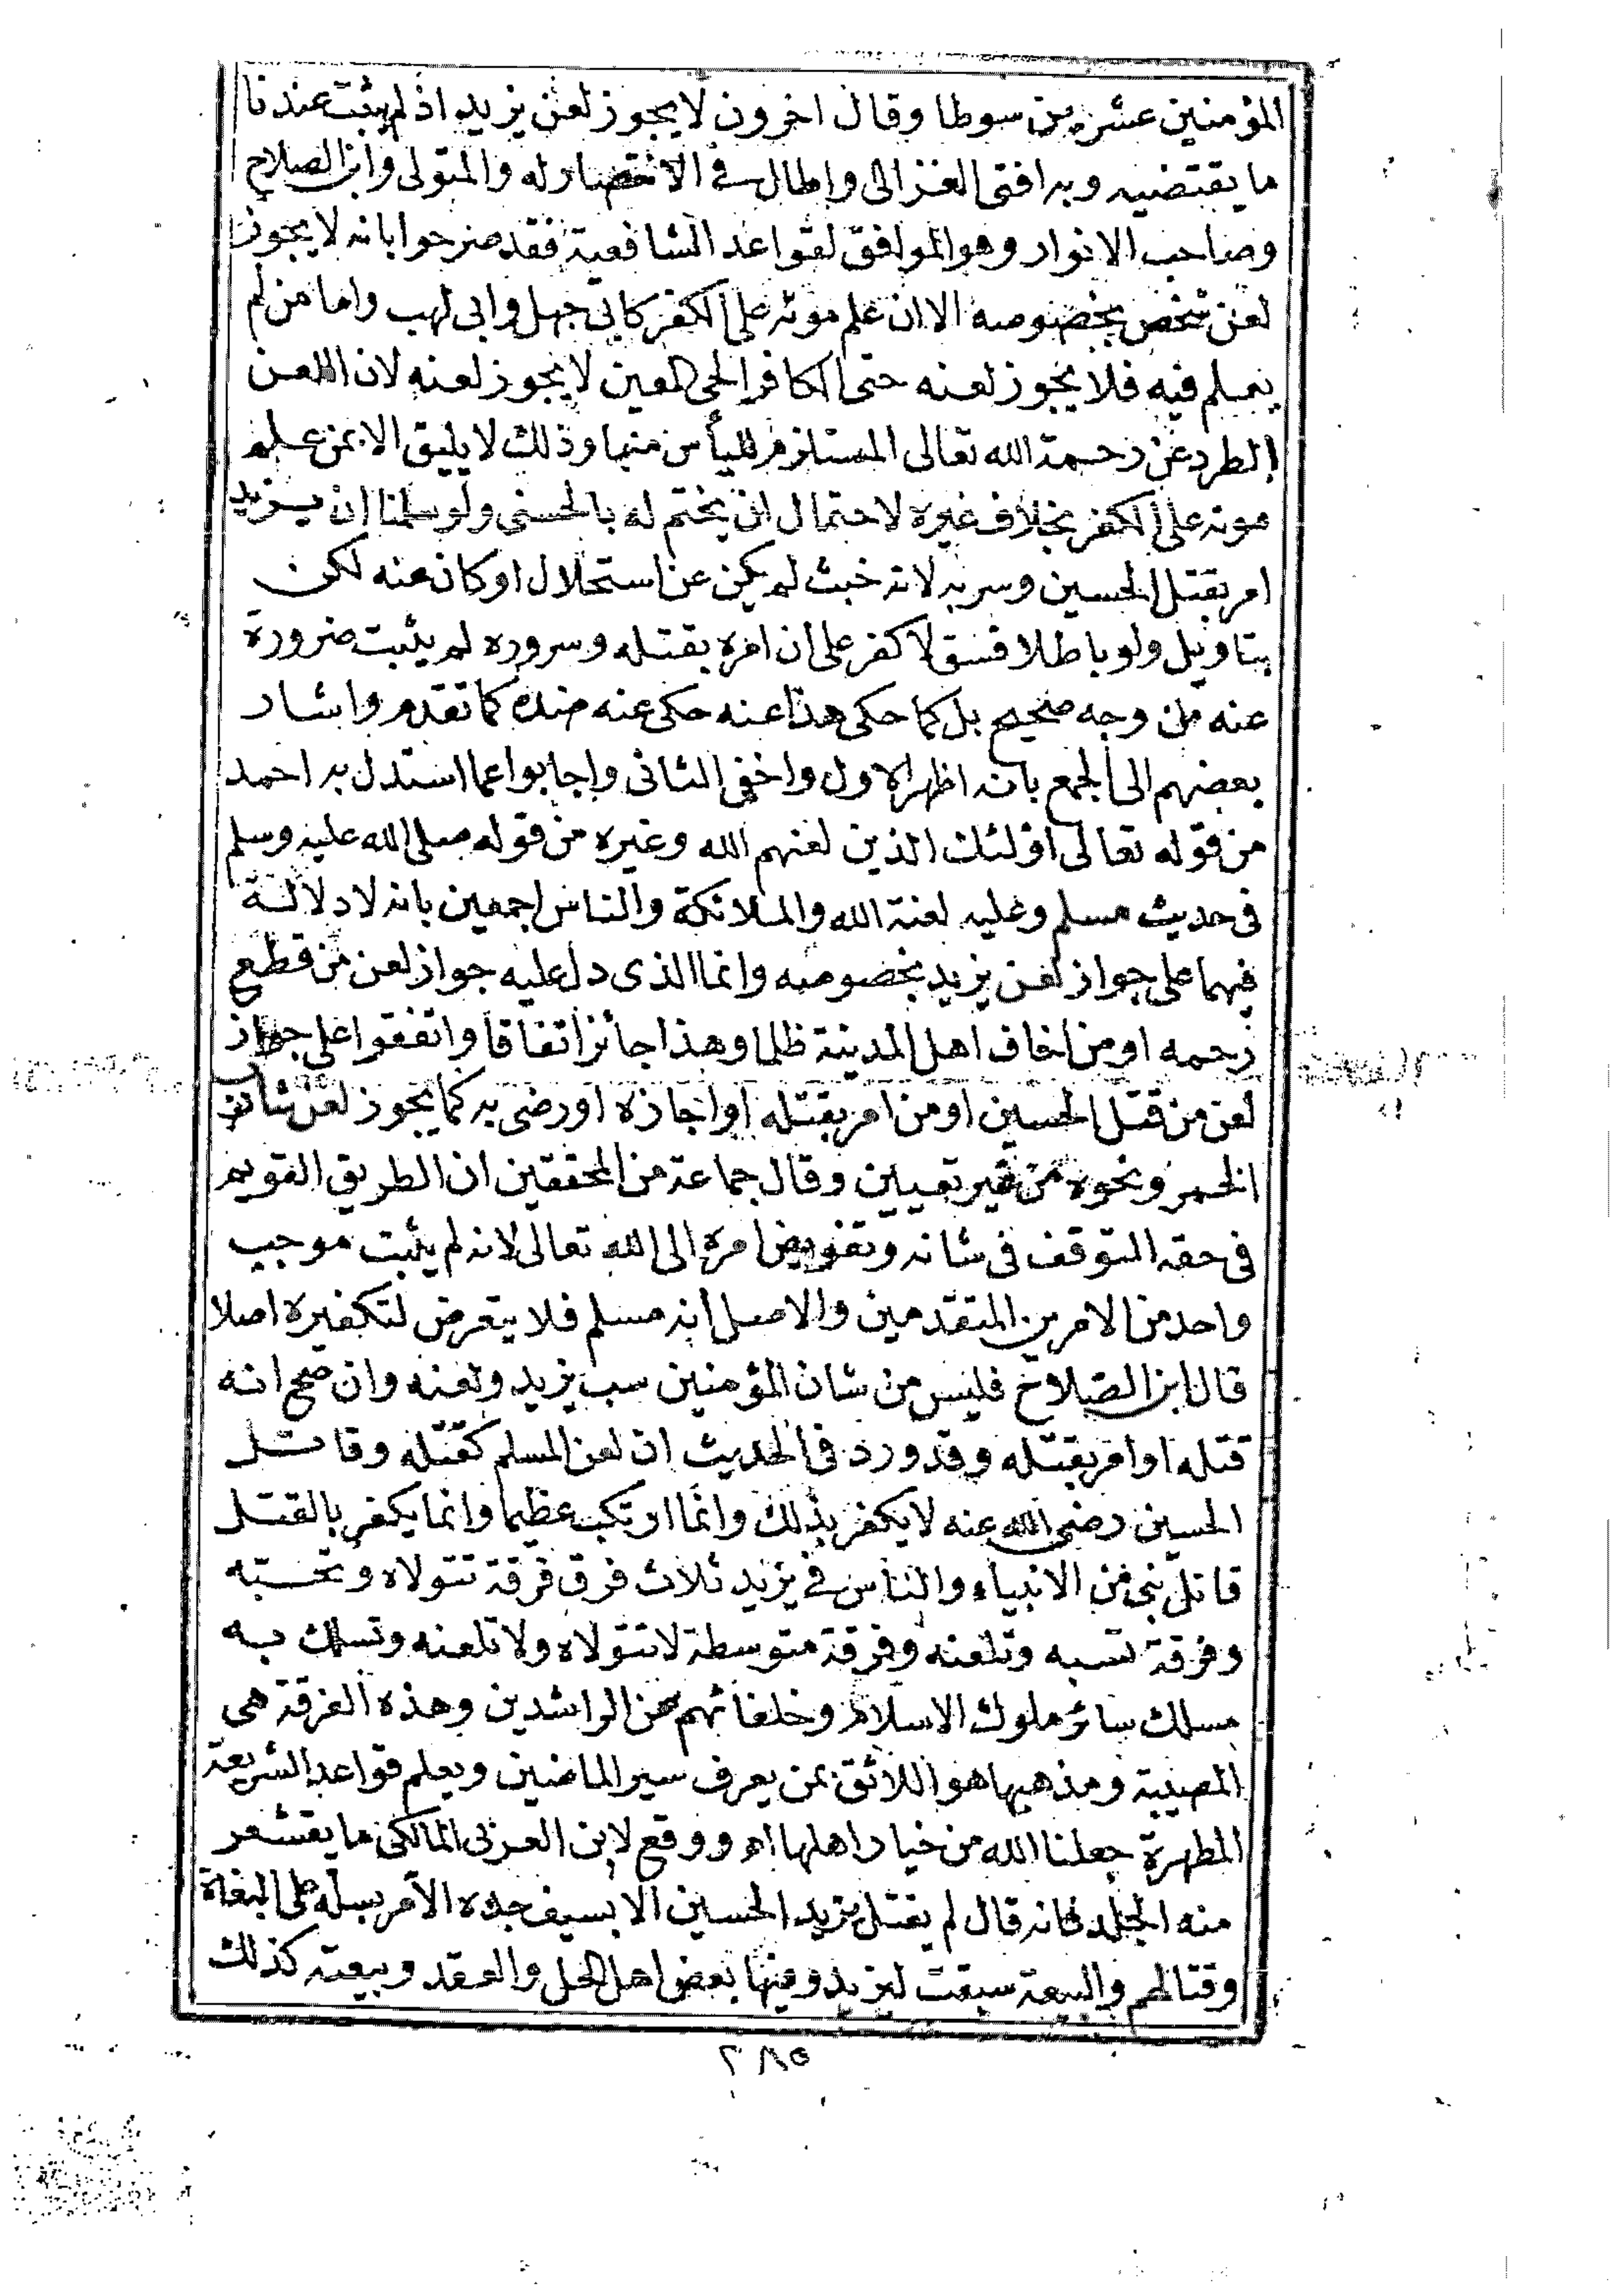 المؤمنين عشرين سوطا وقال اخرون لا يجوز لعن يزيد اذ لم يثبت عندنا
ما يقتضيه وبه افتى الغزالى واطال فى الانتصار له والمتولى وابن الصلاح
وصاحب الانوار وهو الموافق لقواعد الشافعية فقد صرحوا بانه لا يجوز
لعن شخص بخصوصه الا ان علم موته على الكفر كابى جهل وابى لهب واما من لم
يعلم فيه فلا يجوز لعنه حتى الكافر الحى المعين لا يجوز لعنه لان اللعن
الطرد عن رحمة الله تعالى المستلزم لليأس منها وذلك لا يليق الا بمن علم
موته على الكفر بخلاف غيره لاحتمال ان يختم له بالحسنى ولو سلمنا ان يزيد
امر بقتل الحسين وسر به لانه خبث لم يكن عن استحلال او كان عنه لكن
بتاويل ولو باطلا فسق لا كفر على ان امره بقتله وسروره لم يثبت ضرورة
عنه من وجه صحيح بل كما حكى هذا عنه حكى عنه ضده كما تقدم واشار
بعضهم الى الجمع بانه اظهر الاول واخفى الثانى واجابوا عما استدل به احمد
من قوله تعالى اولئك الذين لعنهم الله وغيره من قوله صلى الله عليه وسلم
فى حديث مسلم وعليه لعنة الله والملائكة والناس اجمعين بانه لا دلالة
فيهما على جواز لعن يزيد بخصوصه وانما الذى دل عليه جواز لعن من قطع
رحمه او من اخاف اهل المدينة ظلما وهذا جائز اتفاقا واتفقوا على جواز
لعن من قتل الحسين او من امر بقتله او اجازه او رضى به كما يجوز لعن شارب
الخمر ونحوه من غير تعيين وقال جماعة من المحققين ان الطريق القويم
فى حقه التوقف فى شانه وتفويض امره الى الله تعالى لانه لم يثبت موجب
واحد من الامرين المتقدمين والاصل انه مسلم فلا يتعرض لتكفيره اصلا
قال ابن الصلاح فليس من شان المؤمنين سب يزيد ولعنه وان صح انه
قتله او امر بقتله وقد ورد فى الحديث ان لعن المسلم كقتله وقاتل
الحسين رضى الله عنه لا يكفر بذلك وانما ارتكب عظيما وانما يكفر بالقتل
قاتل نبى من الانبياء والناس فى يزيد ثلاث فرق فرقة تتولاه وتحبه
وفرقة تسبه وتلعنه وفرقة متوسطة لا تتولاه ولا تلعنه وتسلك به
مسلك سائر ملوك الاسلام وخلفائهم غير الراشدين وهذه الفرقة هى
المصيبة ومذهبها هو اللائق بمن يعرف سير الماضين ويعلم قواعد الشريعة
المطهرة جعلنا الله من خيار اهلها اه ووقع لابن العربى المالكى ما يقشعر
منه الجلد فانه قال لم يقتل يزيد الحسين الا بسيف جده الآمر بسله على البغاة
وقتالهم والبيعة سبقت ليزيد وفيها بعض اهل الحل والعقد وبيعته كذلك
٢٨٥